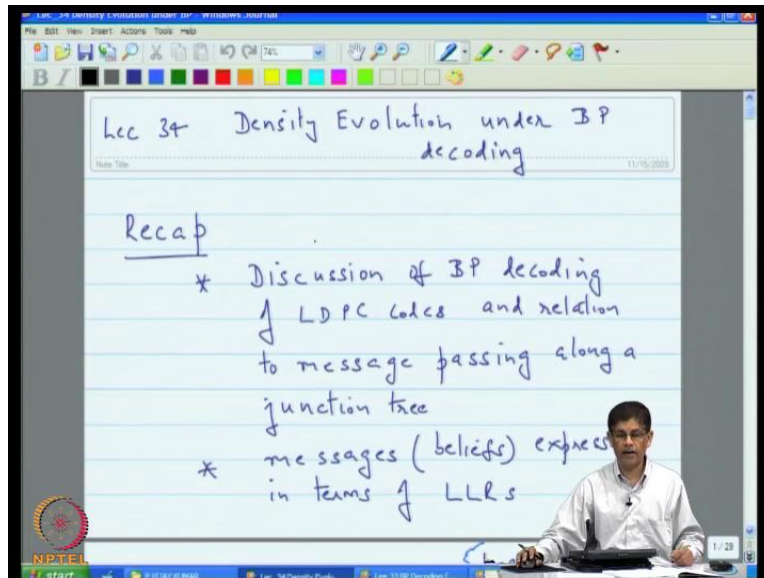 Lec_34 Density Evolution under BP - Windows Journal
File Edit View Insert Actions Tools Help
74%
B I
Lec 34 Density Evolution under BP
decoding
Note Title
11/15/2009
Recap
* Discussion of BP decoding
of LDPC codes and relation
to message passing along a
junction tree
* messages (beliefs) express
in terms of LLRs
1/29
NPTEL
start
P VIJAY KUMAR